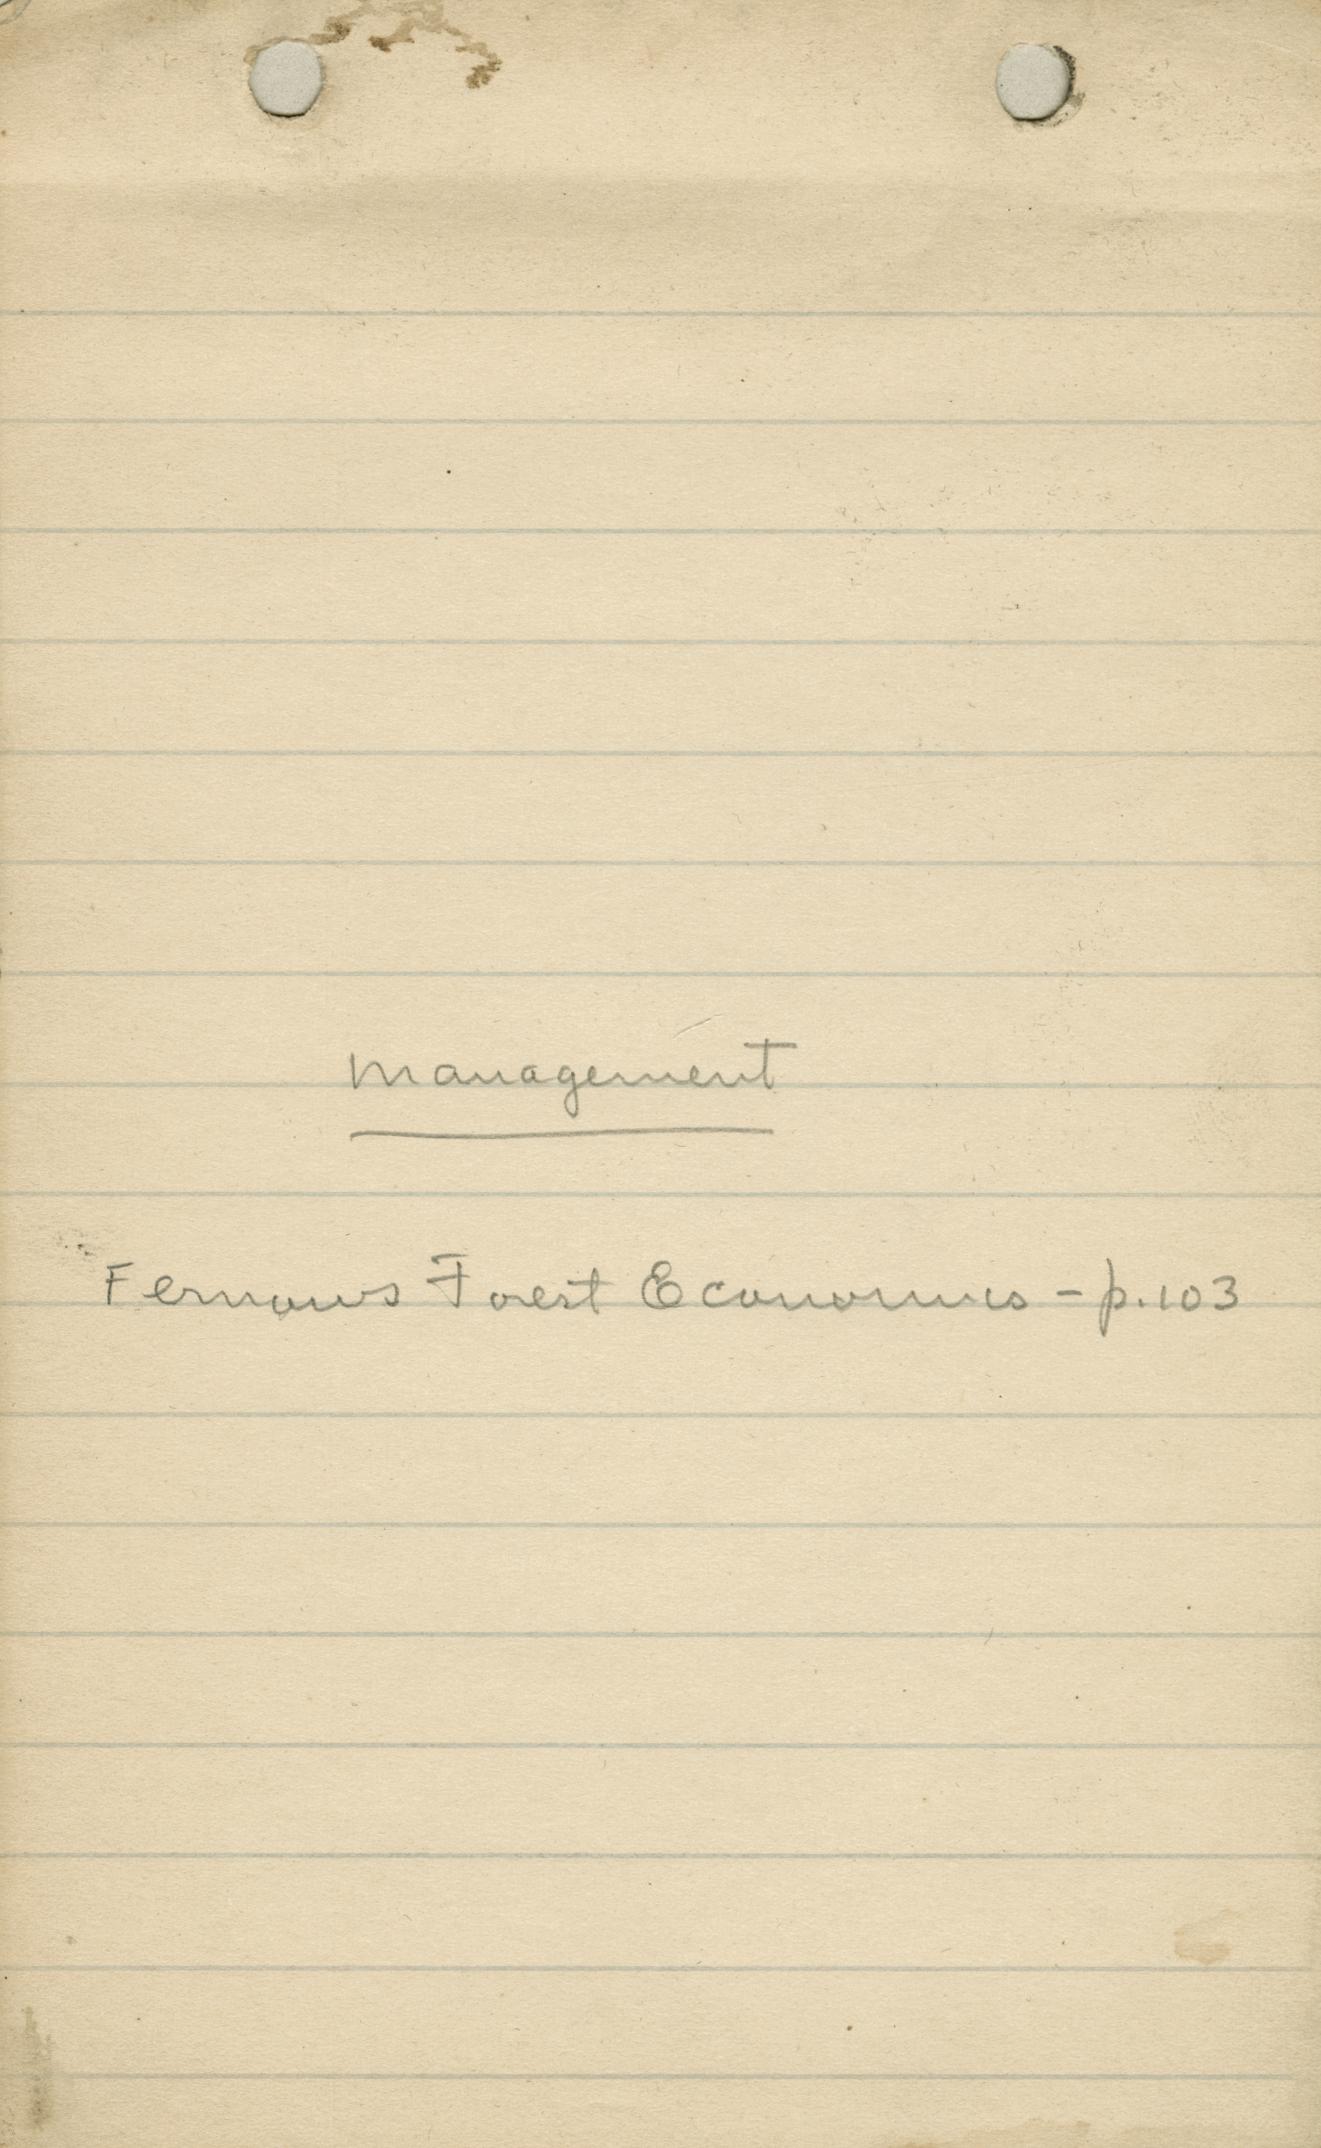 Management
Fernows Forest Economics - p.103